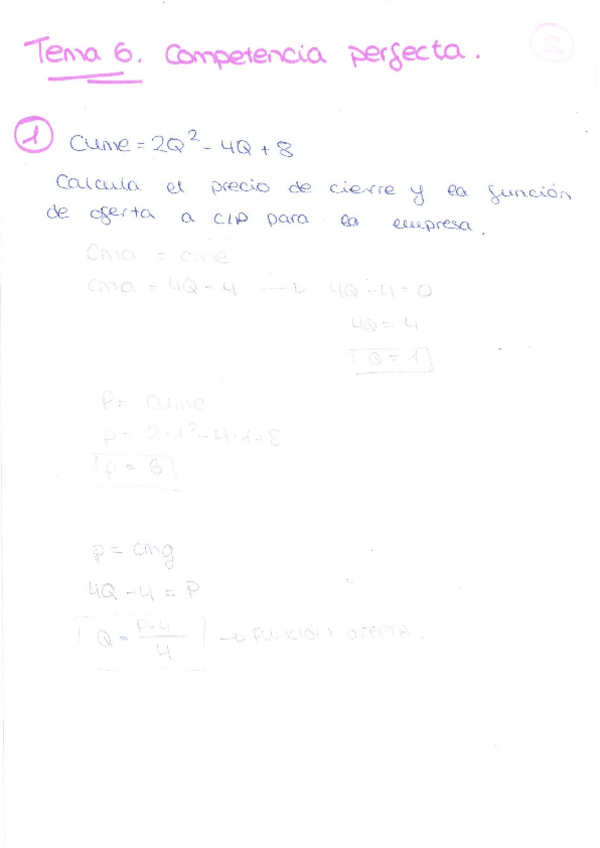 Tema 6. Competencia perfecta.
1 CVMe = 2Q² - 4Q + 8
Calcula el precio de cierre y la función
de oferta a C/P para la empresa.
Cma = cme
Cma = 4Q - 4 → 4Q - 4 = 0
4Q = 4
Q = 1
P = CVMe
p = 2·1² - 4·1 + 8
p = 6
p = cmg
4Q - 4 = P
Q = P+4/4 → FUNCIÓN OFERTA.